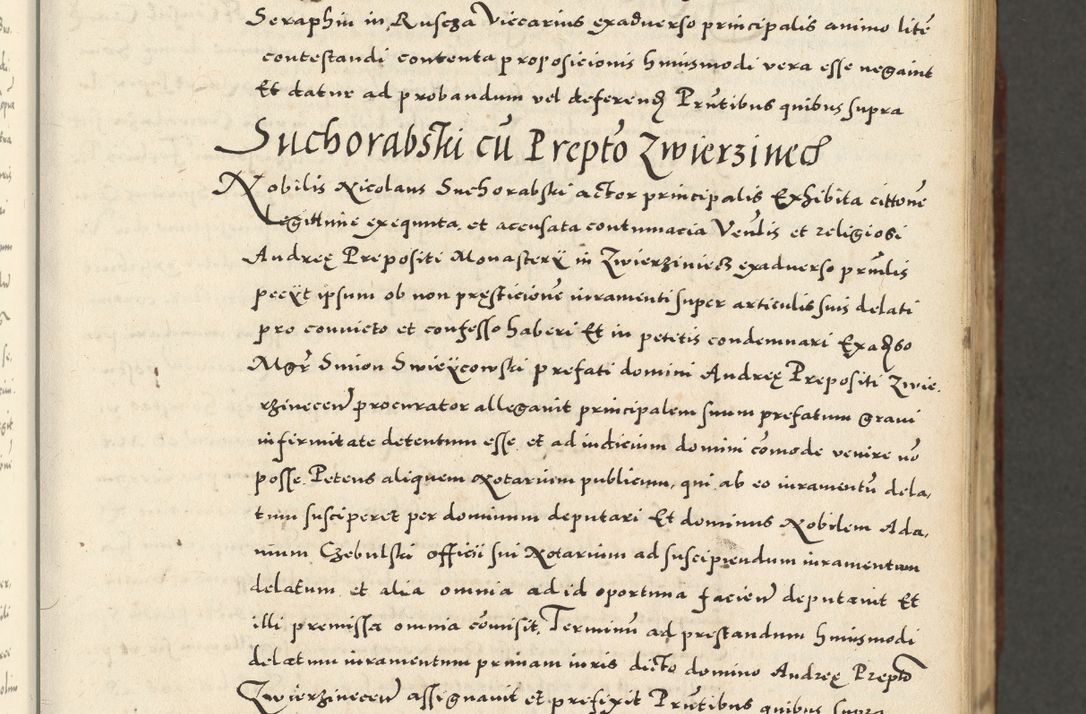 Seraphin in Ruscza Viccarius exadverso principalis animo litē
contestandi contenta proposicionis hmiusmodi vera esse negauit
Et datur ad probandum vel deferend Prūtibus quibus supra
Suchorabski cū Prepto Zwierzinecz
Nobilis Nicolaus Suchorabski actor principalis Exhibita cittone
Legittime exequuta et accusata contumacia Venlis et religiosi
Andreę Prepositi Monasterÿ in Zwierziniecz exadverso prnlis
pecÿt ipsum ob non pręsticione iuramenti super articulis suis delati
pro conuicto et confesso haberi Et in petitis condemnari Exadso
Mgr Simon Swieÿcowski prefati domini Andreę Prepositi Zwie,
rzinecen procurator allegauit principalem suum prefatum graui
infirmitate detentum esse et ad iudicium domini cōmode venire nō
posse. Petens aliquem Notarium publicum, qui ab eo iuramentū dela,
tum susciperet per dominum deputari Et dominus Nobilem Ada,
mum Czebulski officii sui Notarium ad suscipiendum iuramentum
delatum et alia omnia ad id oportuna facien deputauit Et
illi premissa omnia cōmisit, Terminū ad prestandum hmiusmodi
delatum iuramentum primam iuris dicto domino Andreę Prepto
Zwierzinecen assignauit et prefixit Prūtibus quibus supra